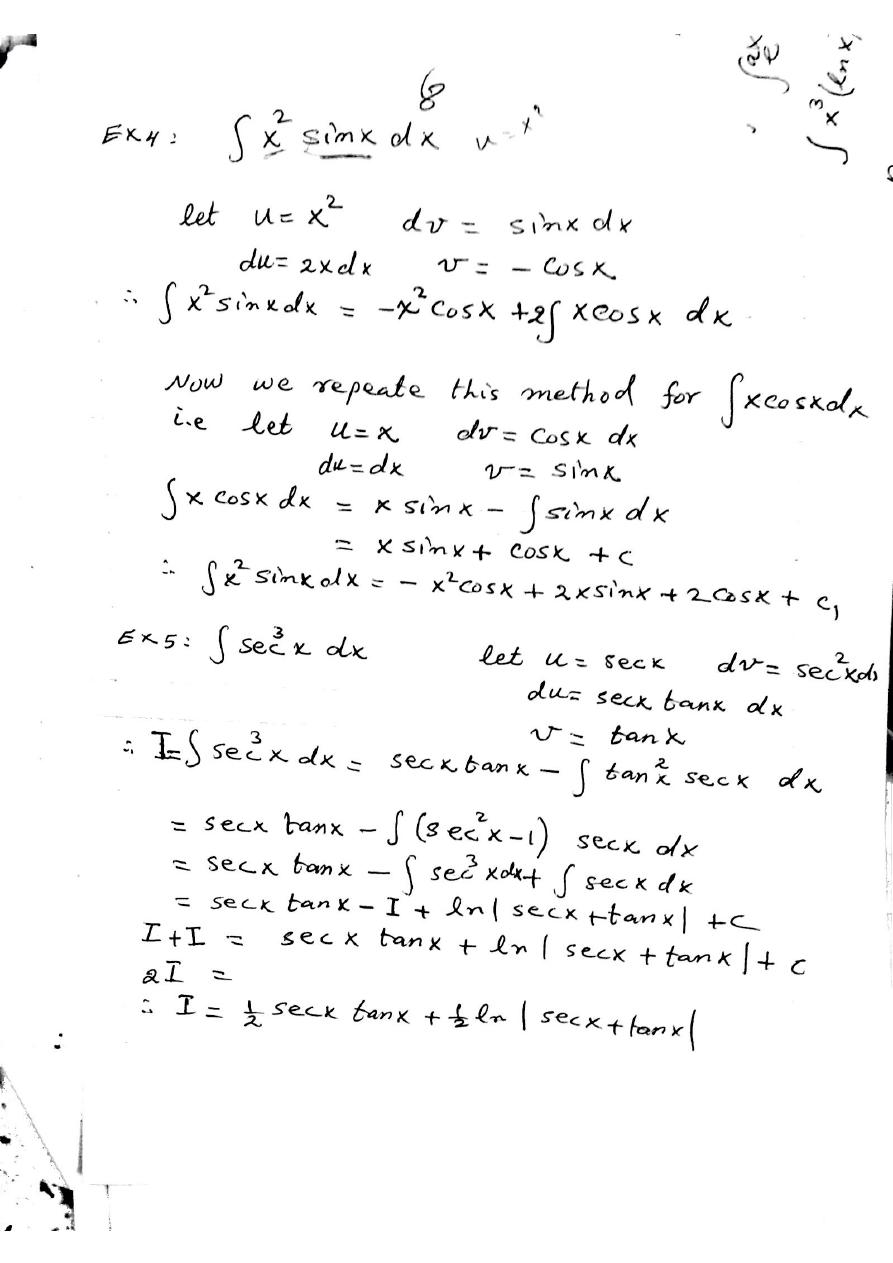 8
Ex4: ∫ x² sinx dx u = xⁿ
let u = x² dv = sinx dx
du = 2xdx v = - cosx
∴ ∫ x² sinx dx = -x² cosx +2∫ xcosx dx
Now we repeate this method for ∫xcosxdx
i.e let u = x dv = cosx dx
du = dx v = sinx
∫ x cosx dx = x sinx - ∫ sinx dx
= x sinx + cosx + c
∴ ∫x² sinx dx = - x² cosx + 2x sinx + 2 cosx + c₁
Ex5: ∫ sec³x dx let u = secx dv = sec²xdx
du = secx tanx dx
v = tanx
∴ I = ∫ sec³x dx = secx tanx - ∫ tan²x secx dx
= secx tanx - ∫ (sec²x-1) secx dx
= secx tanx - ∫ sec³xdx + ∫ secx dx
= secx tanx - I + ln | secx + tanx | + c
I + I = secx tanx + ln | secx + tanx | + c
2I =
∴ I = ½ secx tanx + ½ ln | secx + tanx |
∫ x³ (ln x)